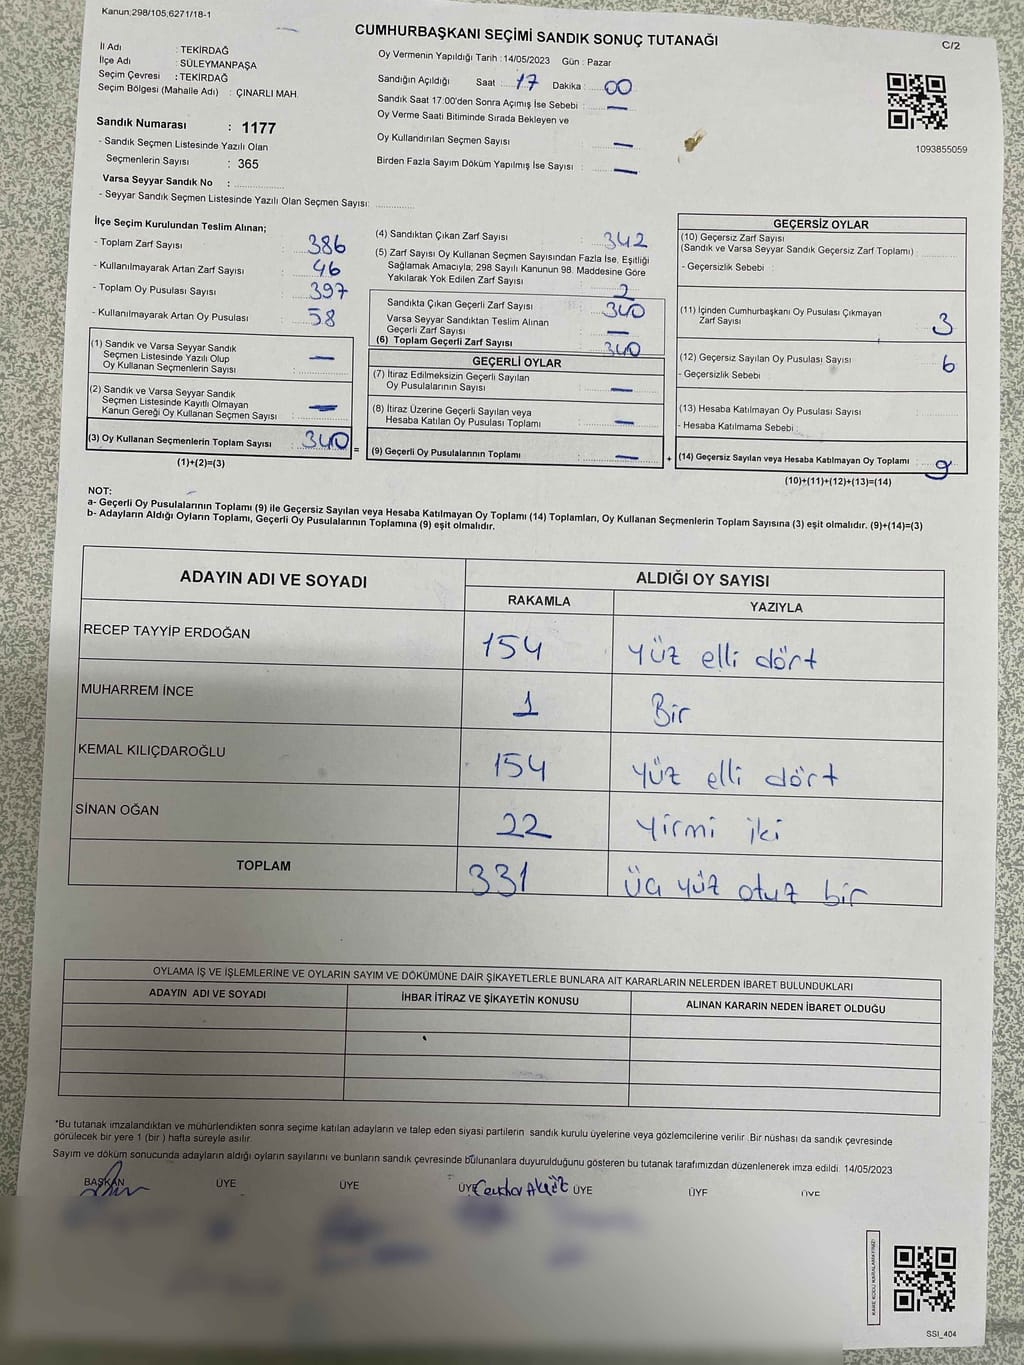 Kanun:298/105,6271/18-1
CUMHURBAŞKANI SEÇİMİ SANDIK SONUÇ TUTANAĞI
C/2
İl Adı : TEKİRDAĞ
İlçe Adı : SÜLEYMANPAŞA
Seçim Çevresi : TEKİRDAĞ
Seçim Bölgesi (Mahalle Adı) : ÇINARLI MAH.
Sandık Numarası : 1177
- Sandık Seçmen Listesinde Yazılı Olan
Seçmenlerin Sayısı : 365
Varsa Seyyar Sandık No :
- Seyyar Sandık Seçmen Listesinde Yazılı Olan Seçmen Sayısı:
Oy Vermenin Yapıldığı Tarih : 14/05/2023 Gün : Pazar
Sandığın Açıldığı Saat : 17 Dakika : 00
Sandık Saat 17:00'den Sonra Açımış İse Sebebi : —
Oy Verme Saati Bitiminde Sırada Bekleyen ve
Oy Kullandırılan Seçmen Sayısı : —
Birden Fazla Sayım Döküm Yapılmış İse Sayısı : —
1093855059
İlçe Seçim Kurulundan Teslim Alınan;
- Toplam Zarf Sayısı : 386
- Kullanılmayarak Artan Zarf Sayısı : 46
- Toplam Oy Pusulası Sayısı : 397
- Kullanılmayarak Artan Oy Pusulası : 58
(1) Sandık ve Varsa Seyyar Sandık
Seçmen Listesinde Yazılı Olup
Oy Kullanan Seçmenlerin Sayısı : —
(2) Sandık ve Varsa Seyyar Sandık
Seçmen Listesinde Kayıtlı Olmayan
Kanun Gereği Oy Kullanan Seçmen Sayısı : —
(3) Oy Kullanan Seçmenlerin Toplam Sayısı : 340 =
(1)+(2)=(3)
(4) Sandıktan Çıkan Zarf Sayısı : 342
(5) Zarf Sayısı Oy Kullanan Seçmen Sayısından Fazla İse, Eşitliği
Sağlamak Amacıyla; 298 Sayılı Kanunun 98. Maddesine Göre
Yakılarak Yok Edilen Zarf Sayısı : 2
Sandıkta Çıkan Geçerli Zarf Sayısı : 340
Varsa Seyyar Sandıktan Teslim Alınan
Geçerli Zarf Sayısı : —
(6) Toplam Geçerli Zarf Sayısı : 340
GEÇERLİ OYLAR
(7) İtiraz Edilmeksizin Geçerli Sayılan
Oy Pusulalarının Sayısı : —
(8) İtiraz Üzerine Geçerli Sayılan veya
Hesaba Katılan Oy Pusulası Toplamı : —
(9) Geçerli Oy Pusulalarının Toplamı : — +
GEÇERSİZ OYLAR
(10) Geçersiz Zarf Sayısı
(Sandık ve Varsa Seyyar Sandık Geçersiz Zarf Toplamı) :
- Geçersizlik Sebebi :
(11) İçinden Cumhurbaşkanı Oy Pusulası Çıkmayan
Zarf Sayısı : 3
(12) Geçersiz Sayılan Oy Pusulası Sayısı : 6
- Geçersizlik Sebebi :
(13) Hesaba Katılmayan Oy Pusulası Sayısı :
- Hesaba Katılmama Sebebi :
(14) Geçersiz Sayılan veya Hesaba Katılmayan Oy Toplamı : 9
(10)+(11)+(12)+(13)=(14)
NOT:
a- Geçerli Oy Pusulalarının Toplamı (9) ile Geçersiz Sayılan veya Hesaba Katılmayan Oy Toplamı (14) Toplamları, Oy Kullanan Seçmenlerin Toplam Sayısına (3) eşit olmalıdır. (9)+(14)=(3)
b- Adayların Aldığı Oyların Toplamı, Geçerli Oy Pusulalarının Toplamına (9) eşit olmalıdır.
ADAYIN ADI VE SOYADI
ALDIĞI OY SAYISI
RAKAMLA YAZIYLA
RECEP TAYYİP ERDOĞAN 154 yüz elli dört
MUHARREM İNCE 1 Bir
KEMAL KILIÇDAROĞLU 154 yüz elli dört
SİNAN OĞAN 22 yirmi iki
TOPLAM 331 üç yüz otuz bir
OYLAMA İŞ VE İŞLEMLERİNE VE OYLARIN SAYIM VE DÖKÜMÜNE DAİR ŞİKAYETLERLE BUNLARA AİT KARARLARIN NELERDEN İBARET BULUNDUKLARI
ADAYIN ADI VE SOYADI İHBAR İTİRAZ VE ŞİKAYETİN KONUSU ALINAN KARARIN NEDEN İBARET OLDUĞU
*Bu tutanak imzalandıktan ve mühürlendikten sonra seçime katılan adayların ve talep eden siyasi partilerin sandık kurulu üyelerine veya gözlemcilerine verilir. Bir nüshası da sandık çevresinde
görülecek bir yere 1 (bir ) hafta süreyle asılır.
Sayım ve döküm sonucunda adayların aldığı oyların sayılarını ve bunların sandık çevresinde bulunanlara duyurulduğunu gösteren bu tutanak tarafımızdan düzenlenerek imza edildi. 14/05/2023
BAŞKAN ÜYE ÜYE ÜYE ÜYE ÜYE ÜYE
SSI_404